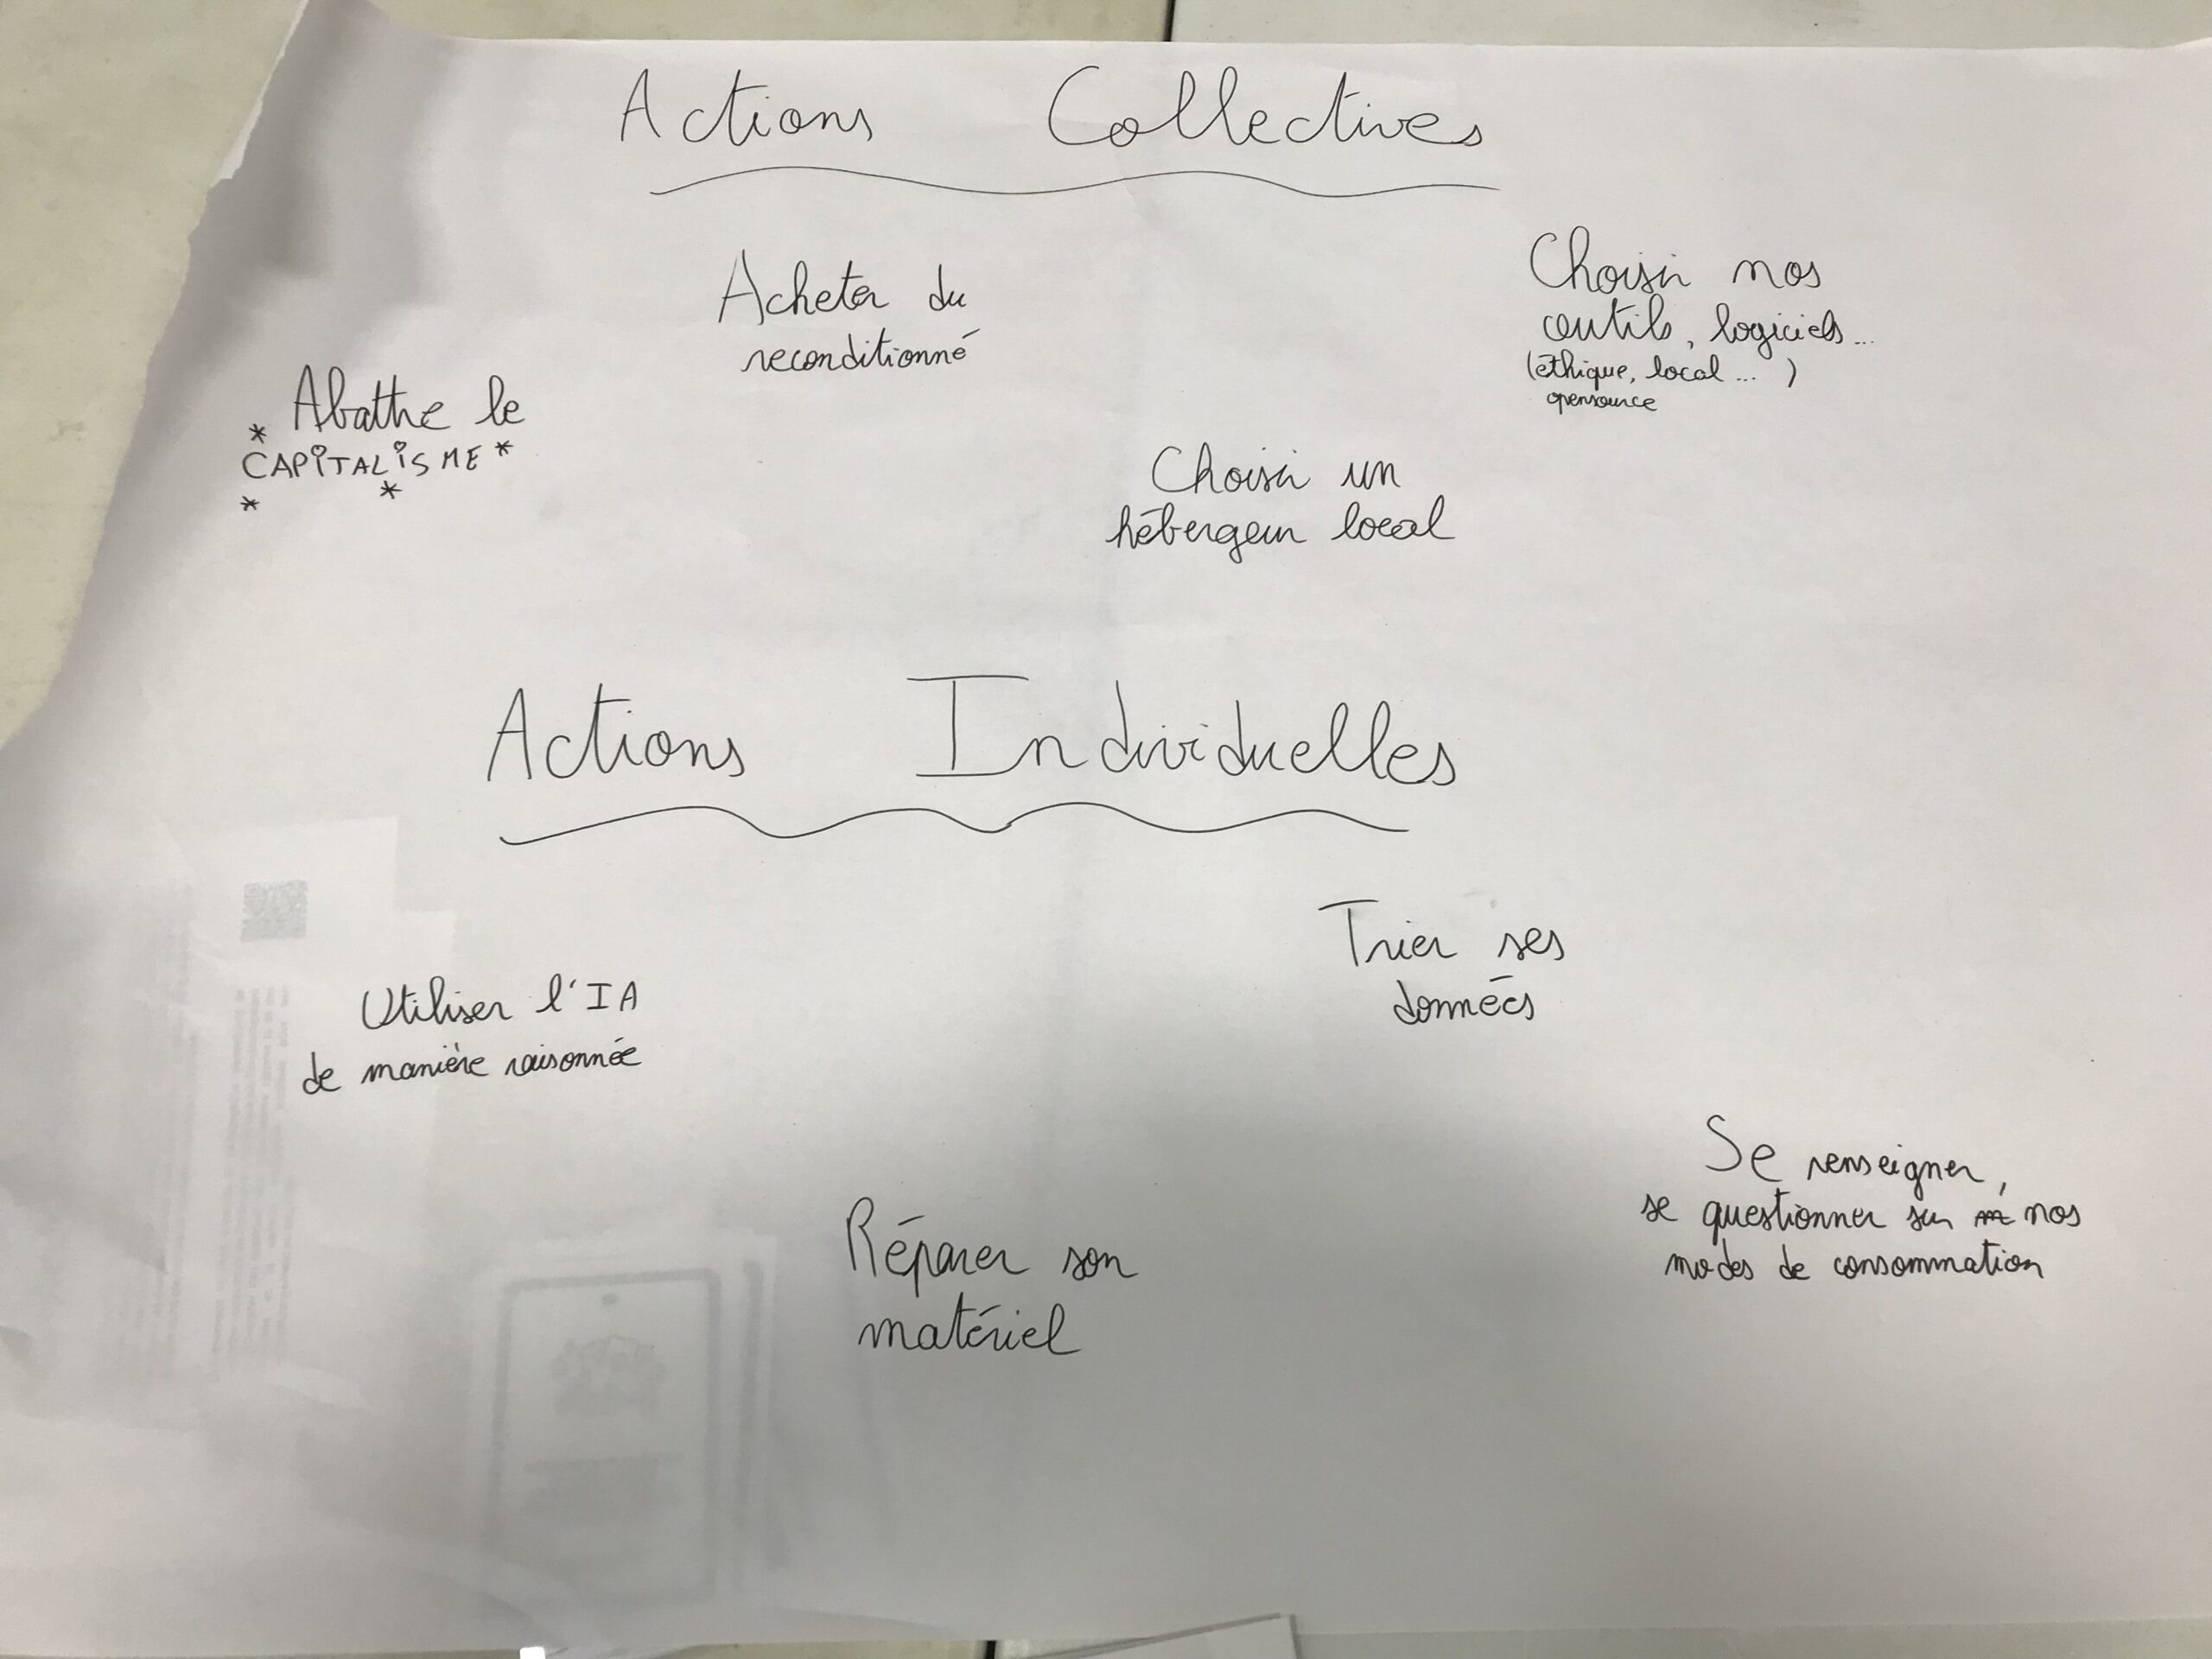 Actions Collectives
Acheter du
reconditionné
Choisir nos
outils, logiciels...
(éthique, local... )
opensource
* Abattre le
CAPiTALiSME *
* *
Choisir un
hébergeur local
Actions Individuelles
Trier ses
données
Utiliser l'IA
de manière raisonnée
Se renseigner,
se questionner sur nos
modes de consommation
Réparer son
matériel